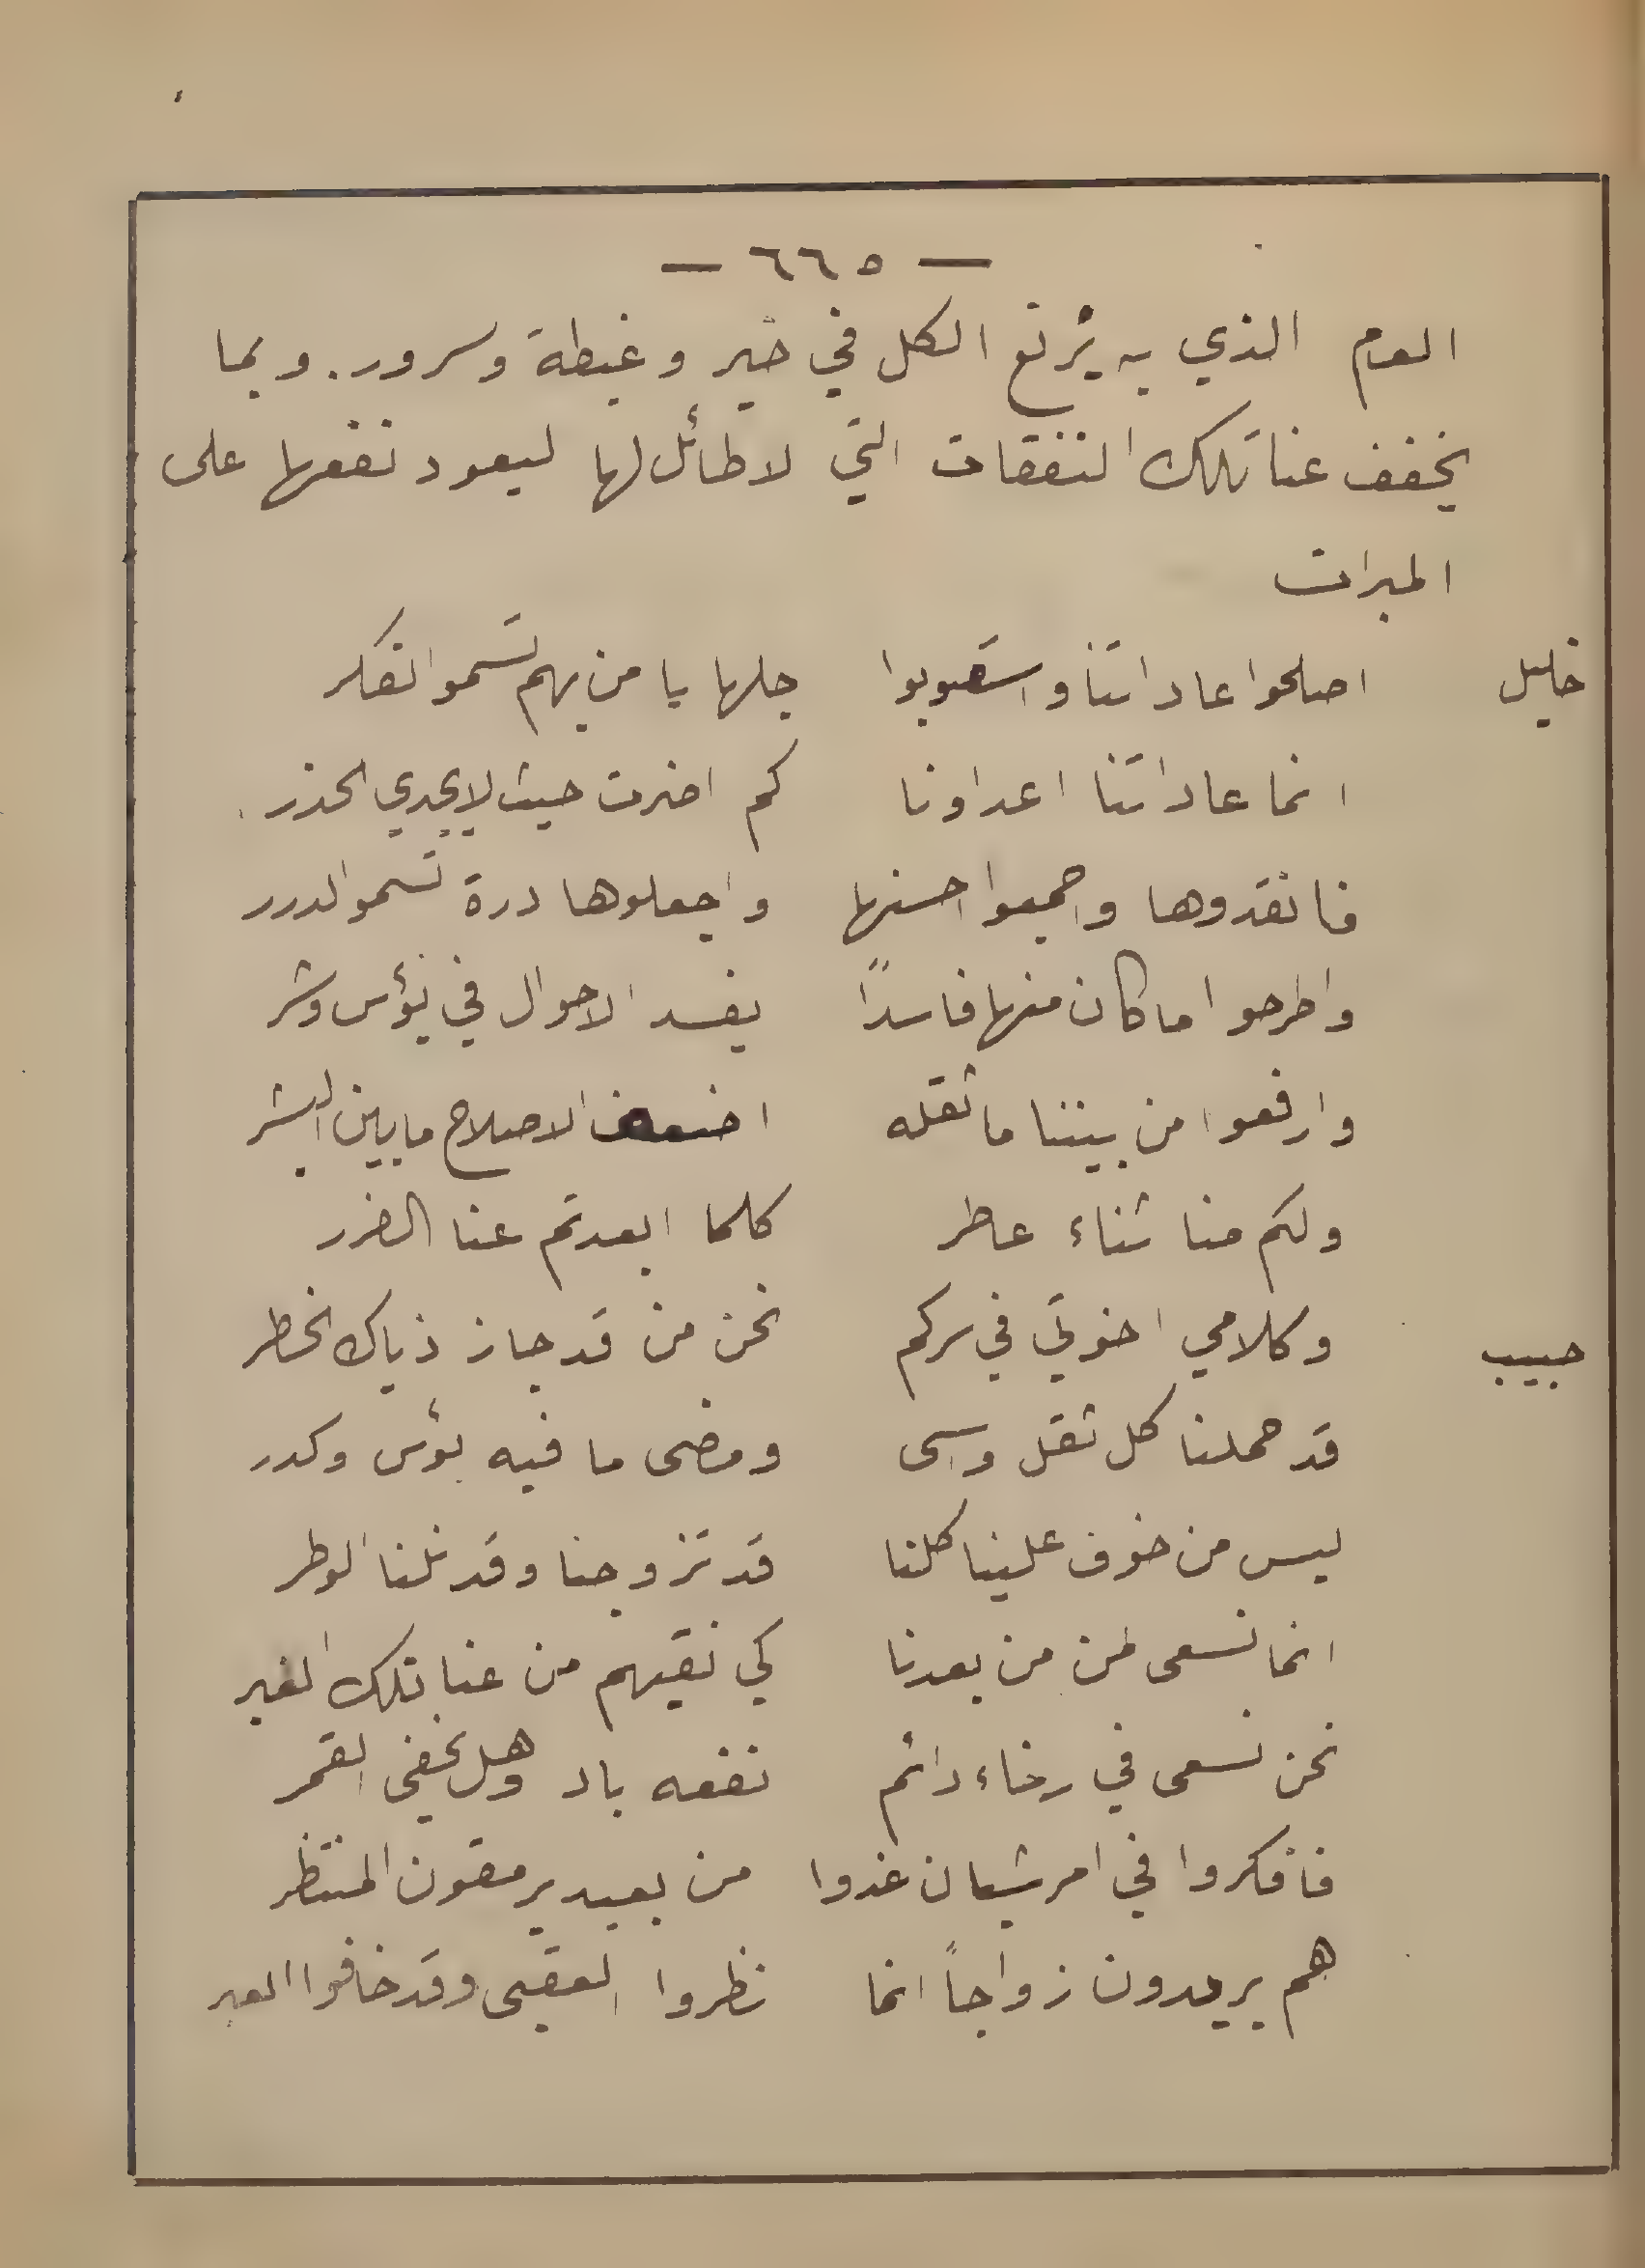 — ٦٦٥ —
العام الذي به يُرتع الكل في خير وغبطة وسرور. وبما
يخفف عنا تلك النفقات التي لا طائل لها ليعود نفعها على
المبرات
خليل اصلحوا عاداتنا واستصوبوا جلها يا من بهم تسمو الفكر
انما عاداتنا اعداونا كم اضرت حيث لا يجدي الحذر
فانقدوها واجمعوا احسنها واجعلوها درة تسمو الدرر
واطرحوا ما كان منها فاسدًا يفسد الاحوال في بؤس وشر
وارفعوا من بيننا ما ثقله اضعف الاصلاح ما بين البشر
ولكم منا ثناء عاطر كلما ابعدتم عنا الضرر
حبيب وكلامي اخوتي في سركم نحن من قد جاز ذياك الخطر
قد حملنا كل ثقل واسى ومضى ما فيه بؤس وكدر
ليس من خوف علينا كلنا قد تزوجنا وقد نلنا الوطر
انما نسعى لمن من بعدنا كي نقيهم من عنا تلك الغير
نحن نسعى في رخاء دائم نفعه باد وهل يخفى القمر
فافكروا في امر شبان غدوا من بعيد يرمقون المنتظر
هم يريدون زواجاً انما نظروا العقبى وقد خافوا العبر